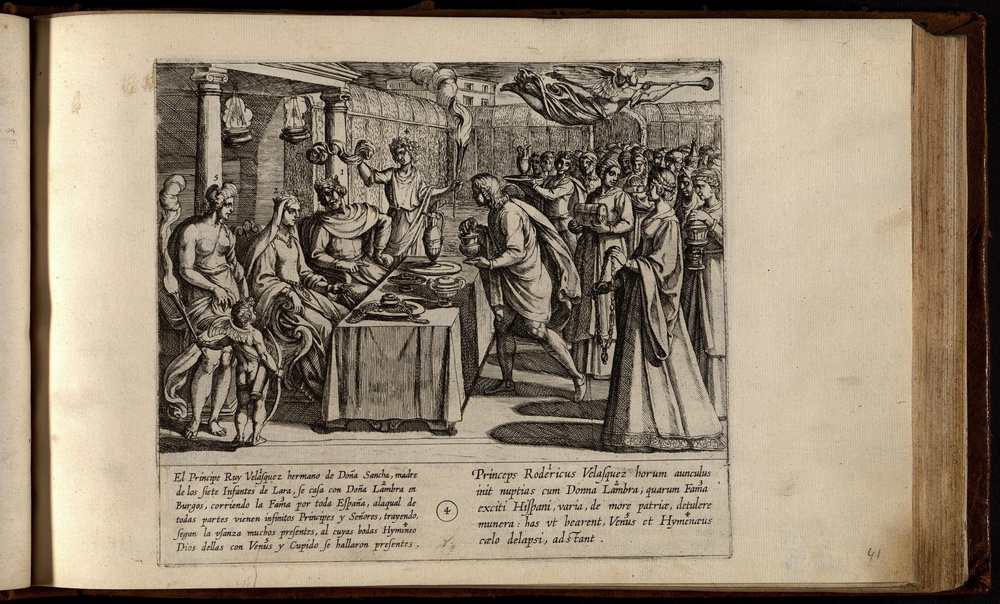 El Principe Ruy Velasquez hermano de Doña Sancha, madre
de los siete Infantes de Lara, se casa con Doña Lambra en
Burgos, corriendo la Fama por toda España, alaqual de
todas partes vienen infinitos Principes y Señores, trayendo,
segun la vsanza muchos presentes, al cuyas bodas Hymineo
Dios dellas con Venus y Cupido se hallaron presentes.
4
Princeps Rodericus Velasquez horum aunculus
init nuptias cum Donna Lambra, quarum Fama
exciti Hispani, varia, de more patriæ, detulere
munera: has vt bearent, Venus et Hymenæus
cælo delapsi, adstant.
41